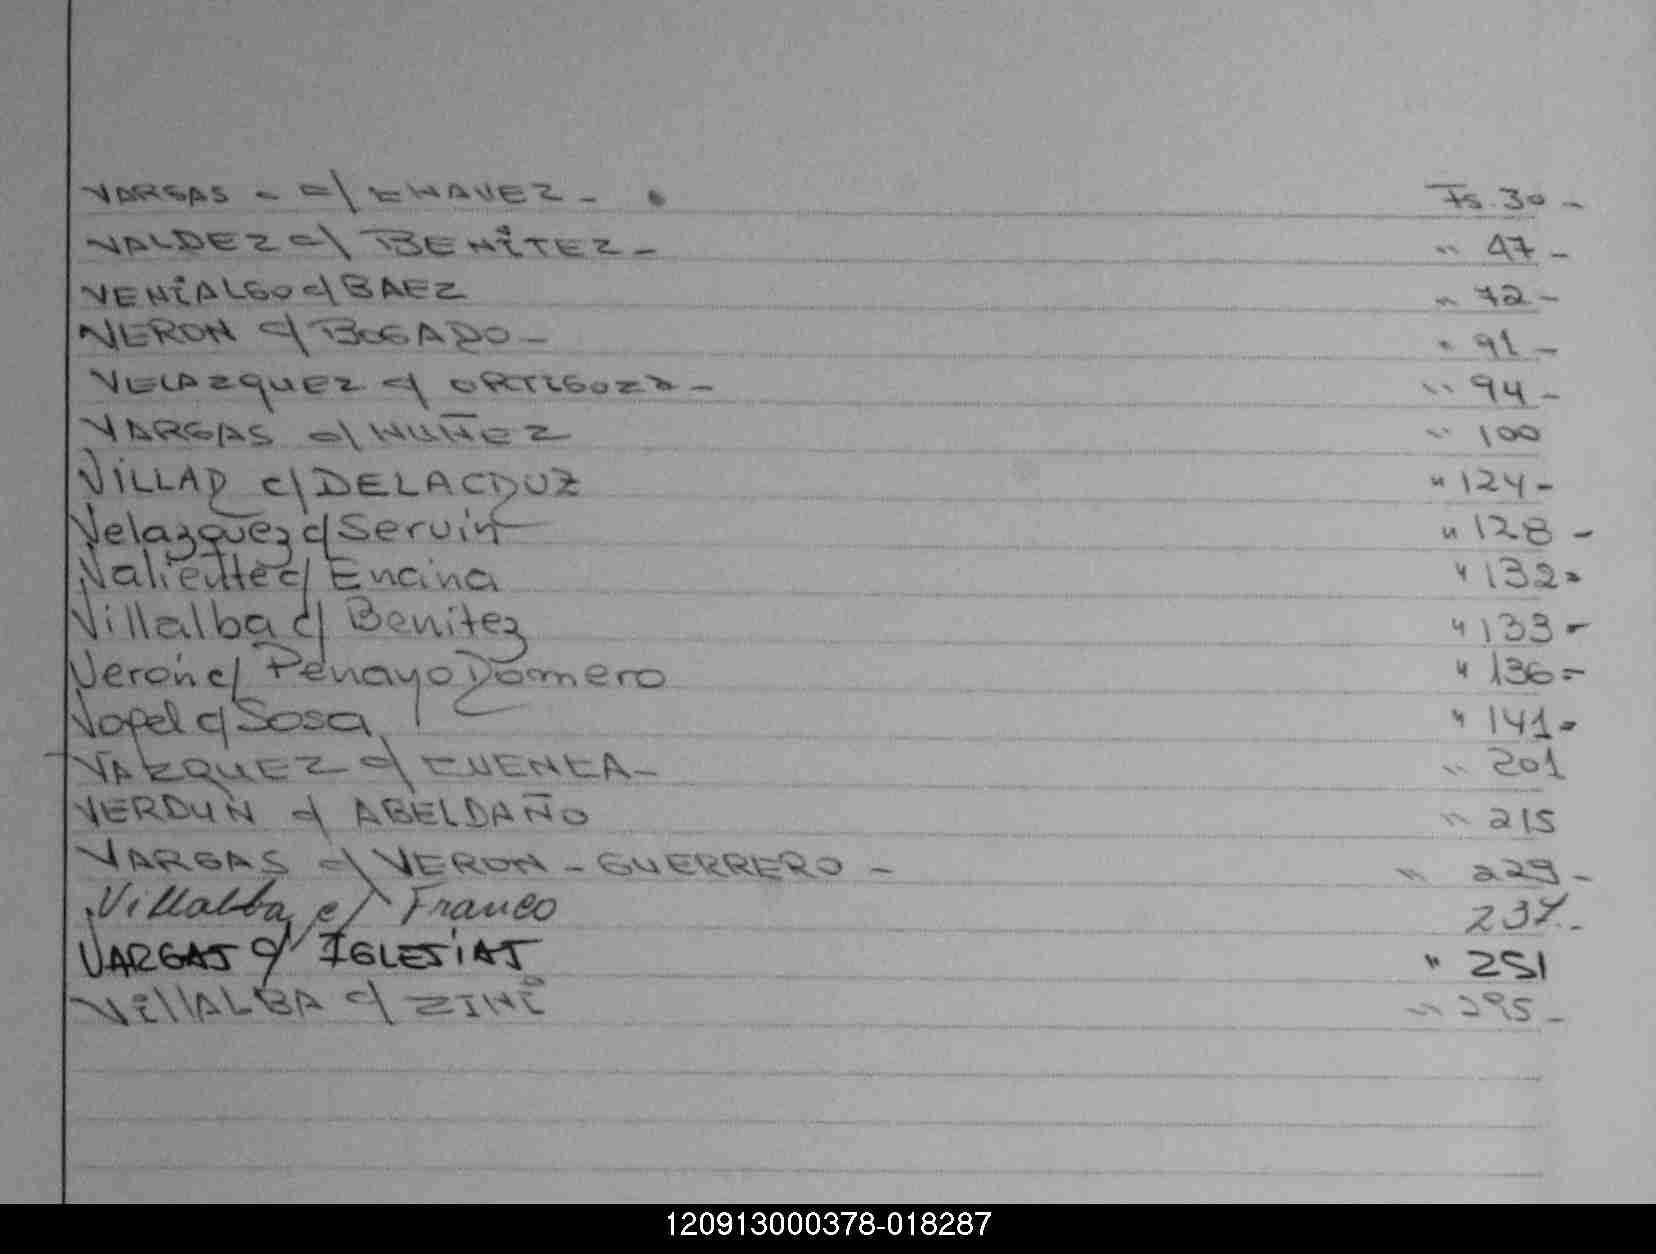 VARGAS - c/ CHAVEZ - Fs. 30 -
VALDEZ c/ BENiTEZ - " 47 -
VENiALGO c/ BAEZ " 72 -
VERON c/ BOGADO - " 91 -
VELAZQUEZ c/ ORTIGOZA - " 94 -
VARGAS c/ NUÑEZ " 100
ViLLAR c/ DELACRUZ " 124 -
Velazquez c/ Servin " 128 -
Valiente c/ Encina " 132 -
Villalba c/ Benitez " 133 -
Verón c/ Penayo Romero " 136 -
Vopel c/ Sosa " 141 -
VAZQUEZ c/ CUENCA - " 201
VERDUN c/ ABELDAÑO " 215
VARGAS c/ VERON - GUERRERO - " 229 -
Villalba c/ Franco 237. -
VARGAS c/ IGLESiAS " 251
VillALBA c/ ZINi " 295 -
120913000378-018287